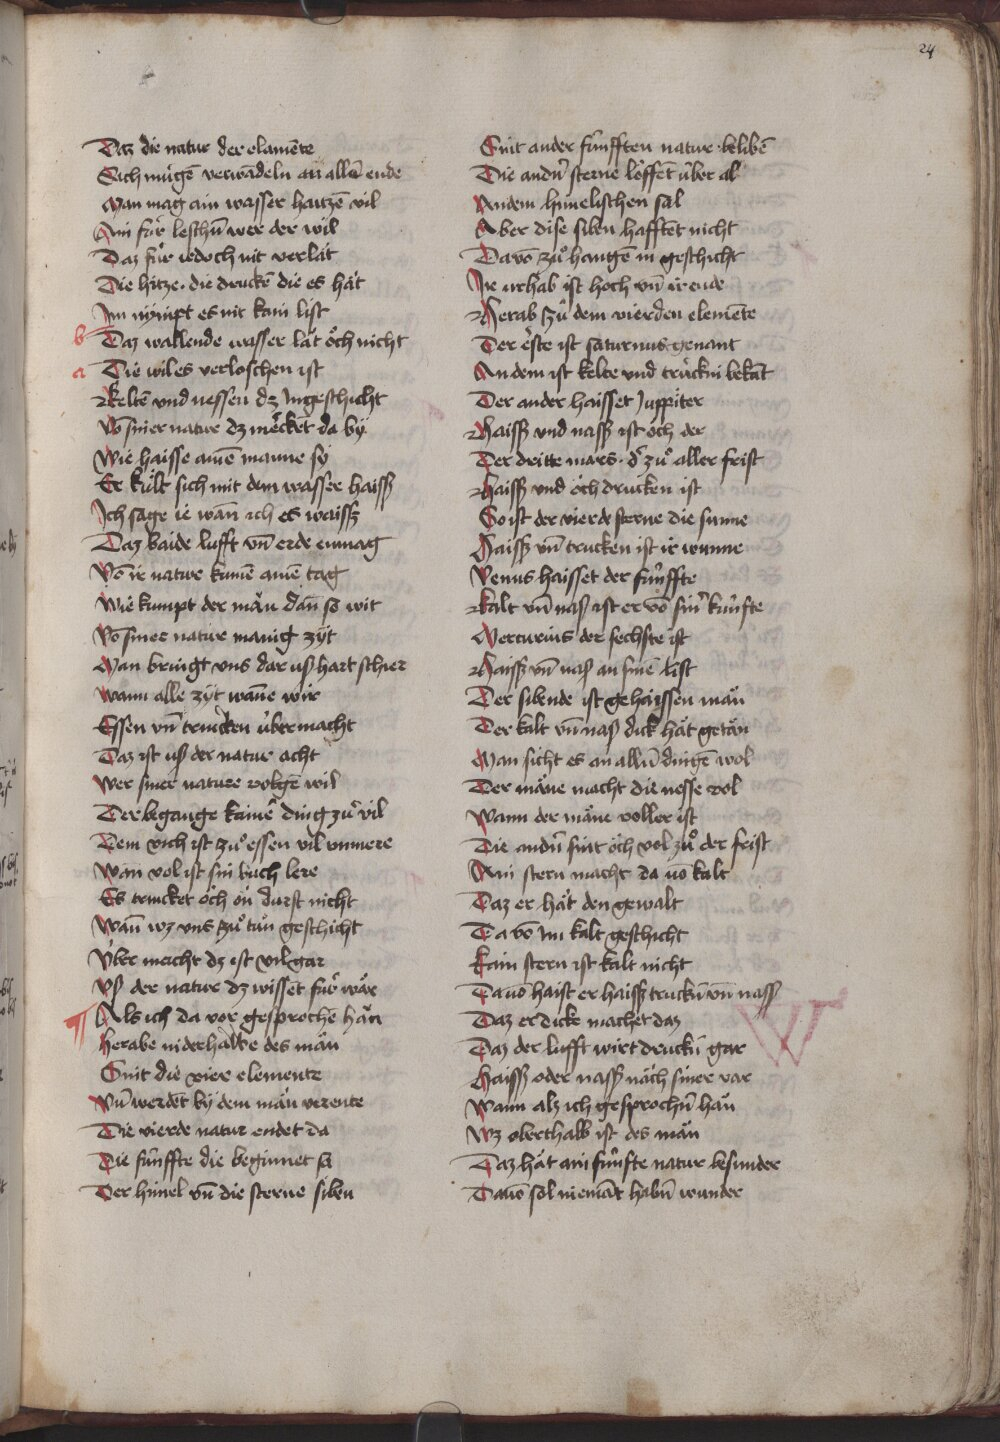 24
Daz die natur der elamēte
Sich mügē verwādeln an allē ende
Man mag ain wasser haitzē vil
Ain für leschn̄ wer der wil
Daz für iedoch nit verlāt
Die hitze· die druckē die es hät
Im nÿmpt es nit kain list
b Daz wallende wasser lät öch nicht
a Die wil es verloschen ist
Keltē vnd nessen dz Imgeschicht
Vō siner natur dz merket da bÿ
Wie haisse ainē manne sÿ
Er kült sich mit dem wasser haiss
Ich sage ie wan̄ ich es waiss
Daz baide lufft vn̄ erde enmag
Vō ir nature kumē ainē tag
Wie kumpt der män dan̄ so wit
Vō siner natur manig zÿt
Man bringt vns dar us hart schier
Wann alle zÿt wan̄e wir
Essen vn̄ trincken übermacht
Daz ist us der natur acht
Wer siner nature volgē wil
Der begange kainē ding zů vil
Dem vich ist zů essen vil vnmere
Wan̄ vol ist sin buch lere
Es trincket öch on durst nicht
Wan̄ wz vns zů tůn geschicht
Vber macht dz ist vil gar
Vs der natur dz wissēt für wär
¶ Als ich da vor gesprochē hän
Herabe niderhalbe des män
Sint die vier elemente
Vn̄ werdēt bÿ dem män verente
Die vierde natur endet da
Die fünffte die beginnet sa
Der himel vn̄ die sterne siben
Sint ander fünfften natur· belibē
Die andn̄ sterne löffēt über al
An dem himelischen sal
Aber dise siben hafftēt nicht
Da vō zů hangē in geschicht
Ir urhab ist hoch vn̄ ir ende
Herab zů dem vierden elemēte
Der erste ist saturnus genant
An dem ist kelte vnd trückni bekāt
Der ander haisset Juppiter
Haiss vnd nass ist öch der
Der dritte mars· d' zů aller frist
Haiss vnd öch drucken ist
So ist der vierde sterne die sunne
Haiss vn̄ trucken ist ir wunne
Venus haisset der fünffte
Kalt vn̄ nas ist er vō sin' künfte
Mercurius der sechste ist
Haiss vn̄ nas an sinē list
Der sibende ist gehaissen män
Der kalt vn̄ nas dick hät getän
Man sicht es an alln̄ dingē wol
Der mäne macht die nesse vol
Wann der mäne voller ist
Die andn̄ sint öch vol zů der frist
Ain stern macht da vō kalt
Daz er hät den gewalt
Da vō im kalt geschicht
Kain stern ist kalt nicht
Da vō haist er haiss truckn̄ vn̄ nass
Daz er dicke machet daz
Daz der lufft wirt druckn̄ gar
Haiss oder nass näch siner var
Wann alz ich gesprochn̄ hän
Wz oberthalb ist des män
Daz hät ain fünfte natur besunder
Da vō sol niemāt habn̄ wunder